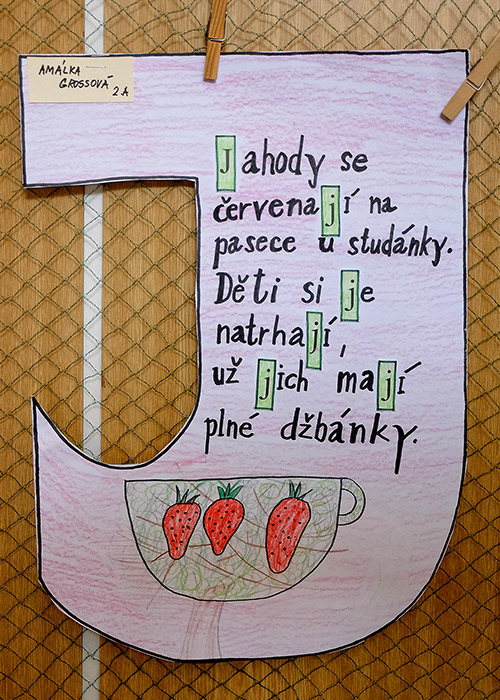 AMÁLKA
GROSSOVÁ
2A
Jahody se
červenají na
pasece u studánky.
Děti si je
natrhají,
už jich mají
plné džbánky.